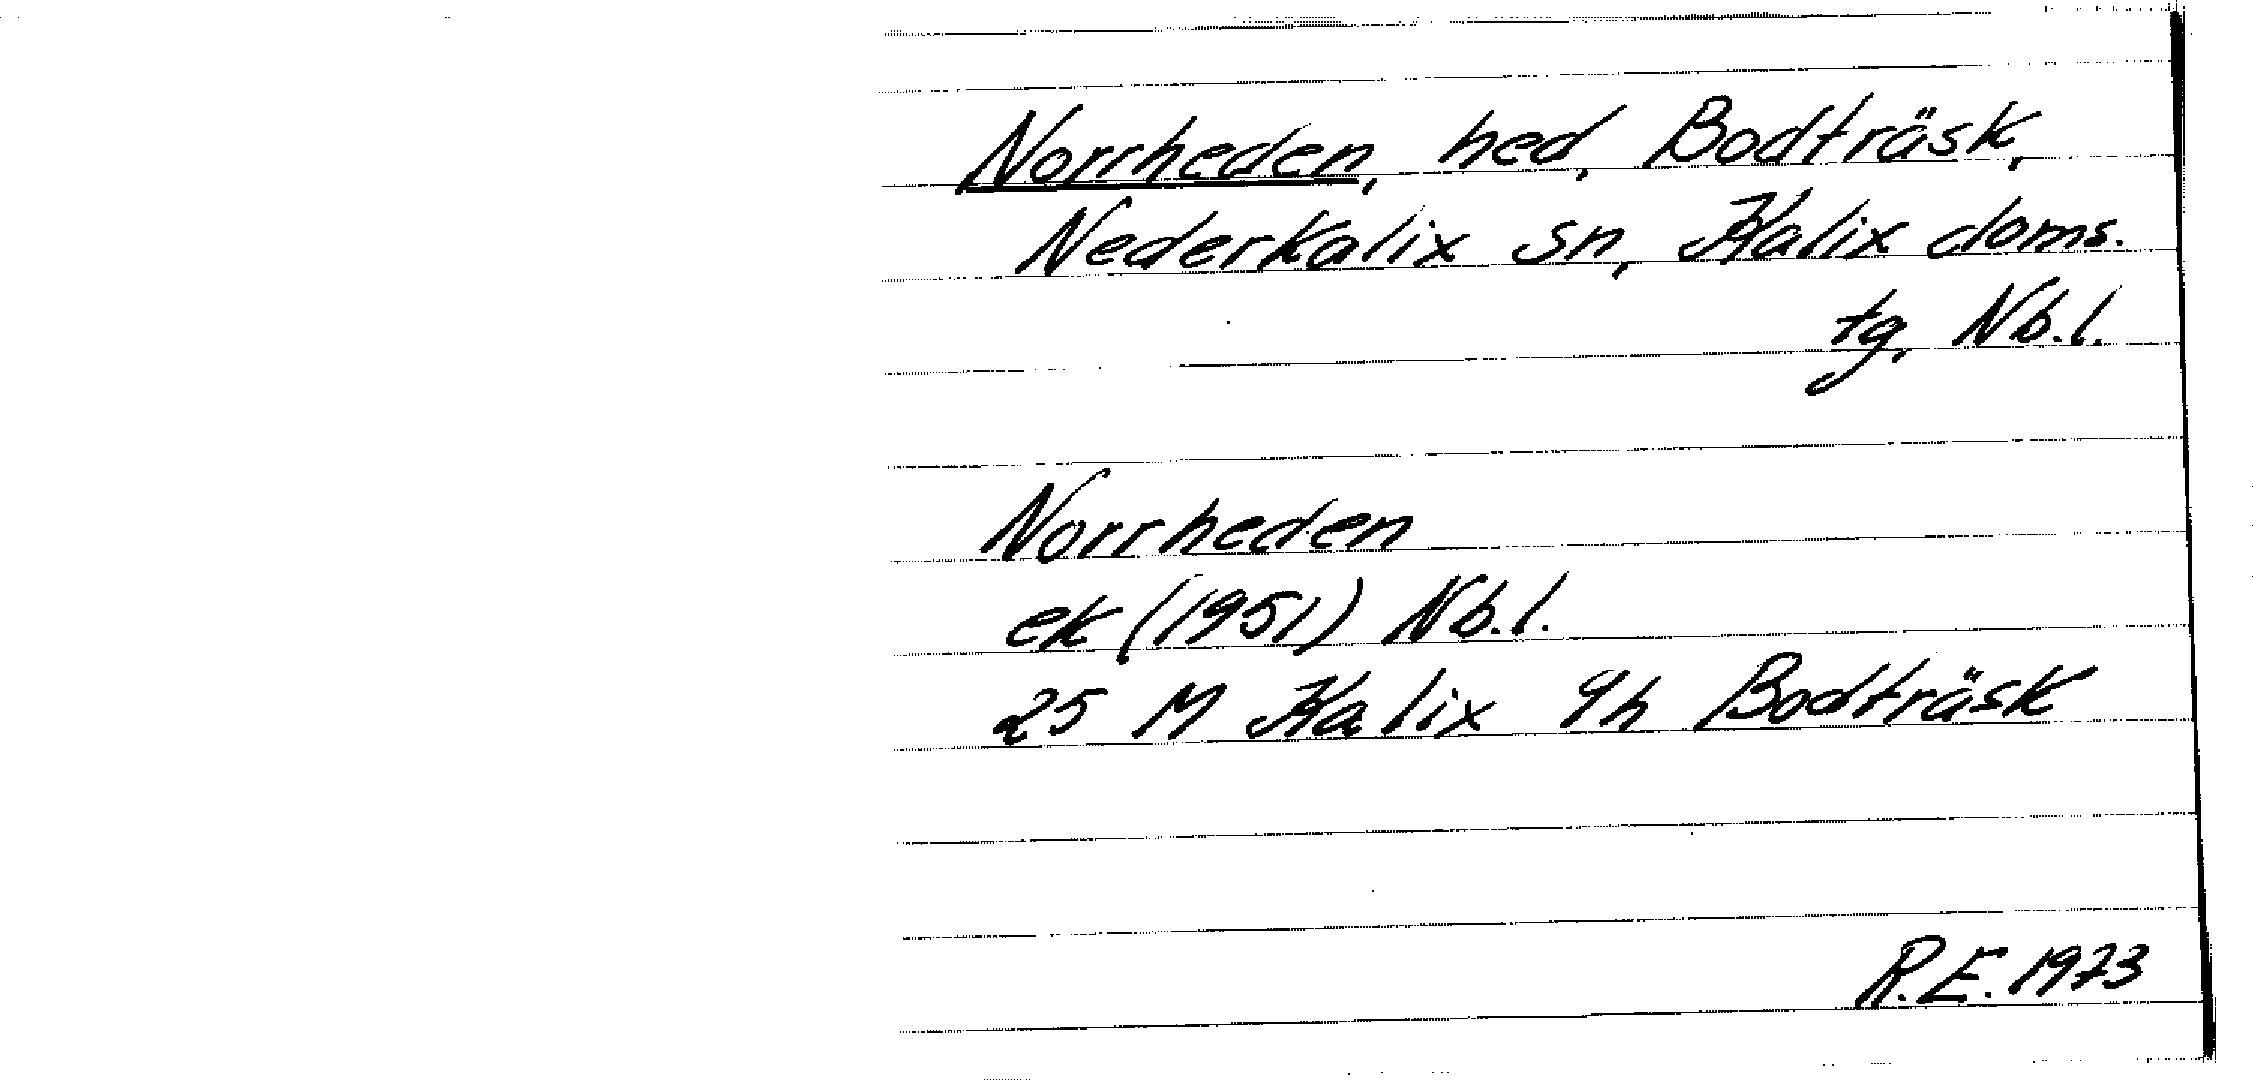 Norrheden, hed, Bodträsk,
Nederkalix sn, Kalix doms.
tg, Nb.l.
Norrheden
ek (1951) Nb.l.
25 M Kalix 9h Bodträsk
R.E. 1973